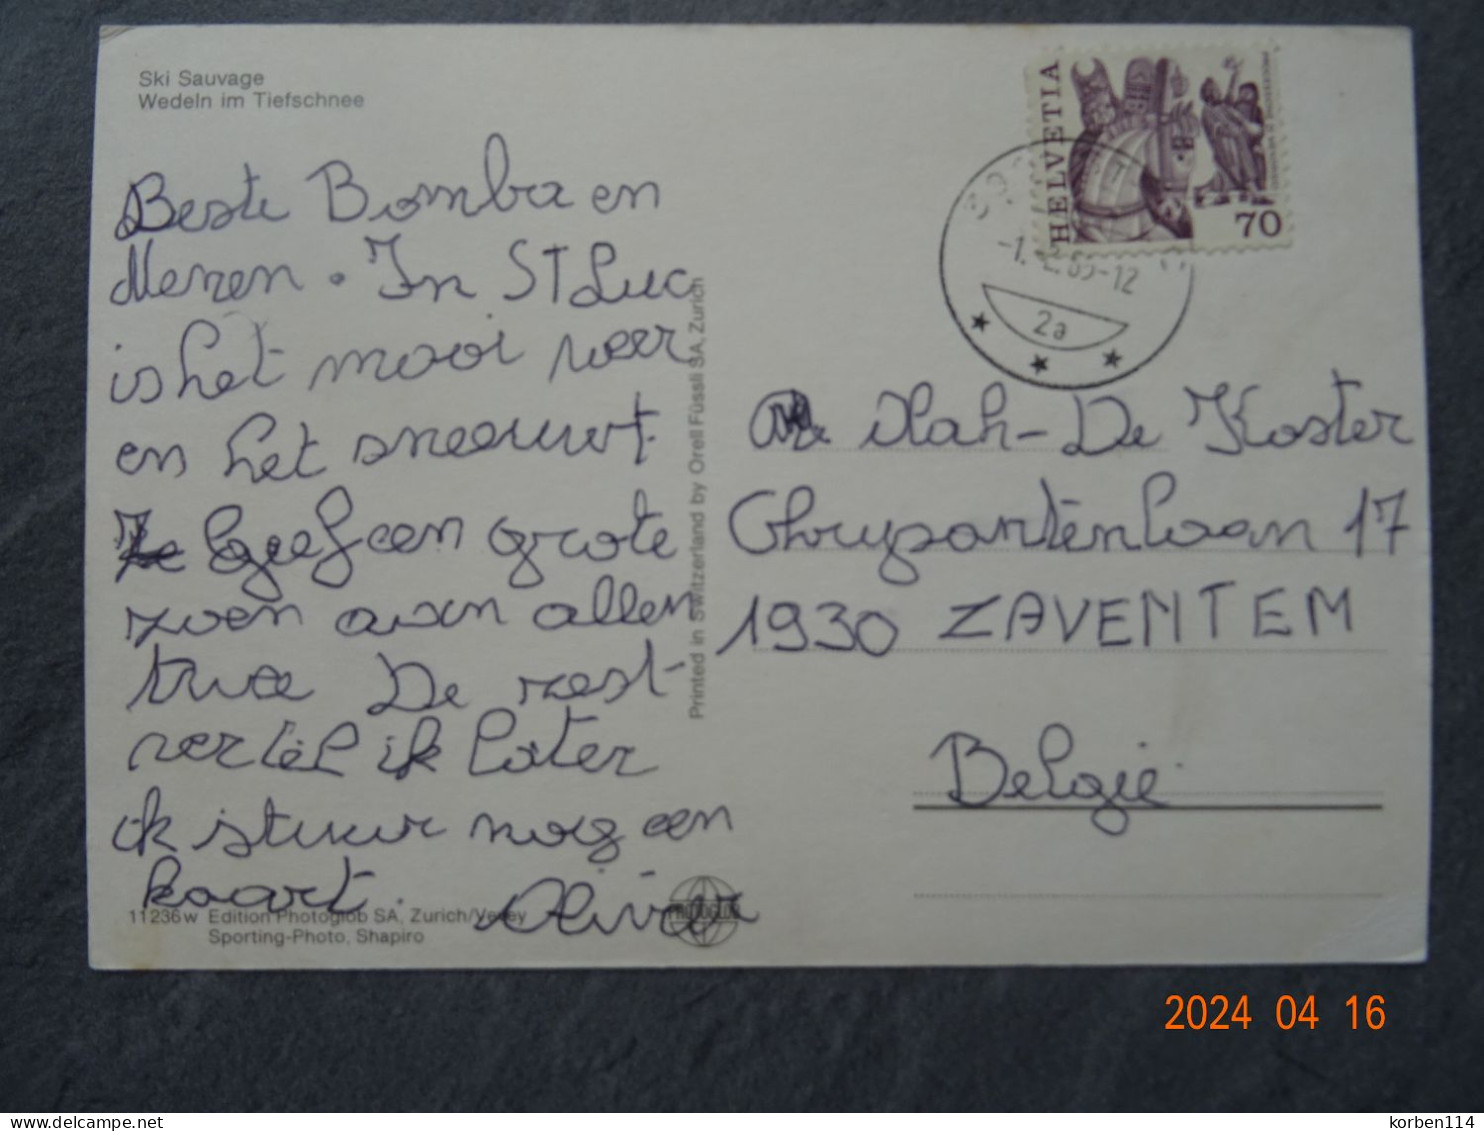 Ski Sauvage
Wedeln im Tiefschnee
HELVETIA
70
2a
Beste Bomba en
In ST Luc
is het mooi weer
en het sneeuwt.
Ik geef een grote
zoen aan allen
twee De rest
vertèl ik later
ik stuur nog een
kaart. Olivier
11236w Edition Photoglob SA, Zurich/Vevey
Sporting-Photo, Shapiro
PHOTOGLOB
Printed in Switzerland by Orell Füssli SA, Zurich
De Koster
Chrysantenlaan 17
1930 ZAVENTEM
België
2024 04 16
korben114